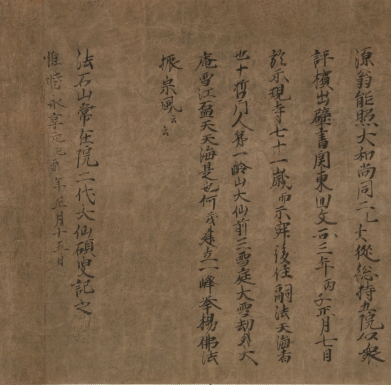 源翁能照大和尚同二七大從総持五院以衆
評擯出礫書関東回文三年丙子正月七日
於示現寺七十一歳而示寂後住嗣法天海者
也十哲門人第一齢山大仙前三雪庭大雪劫外大
庵雪江盈天天海是也何茂建立一峰挙揚佛法
振宗風云云
法石山常在院二代大仙碩叟記之
惟時永享元己酉年正月十五日